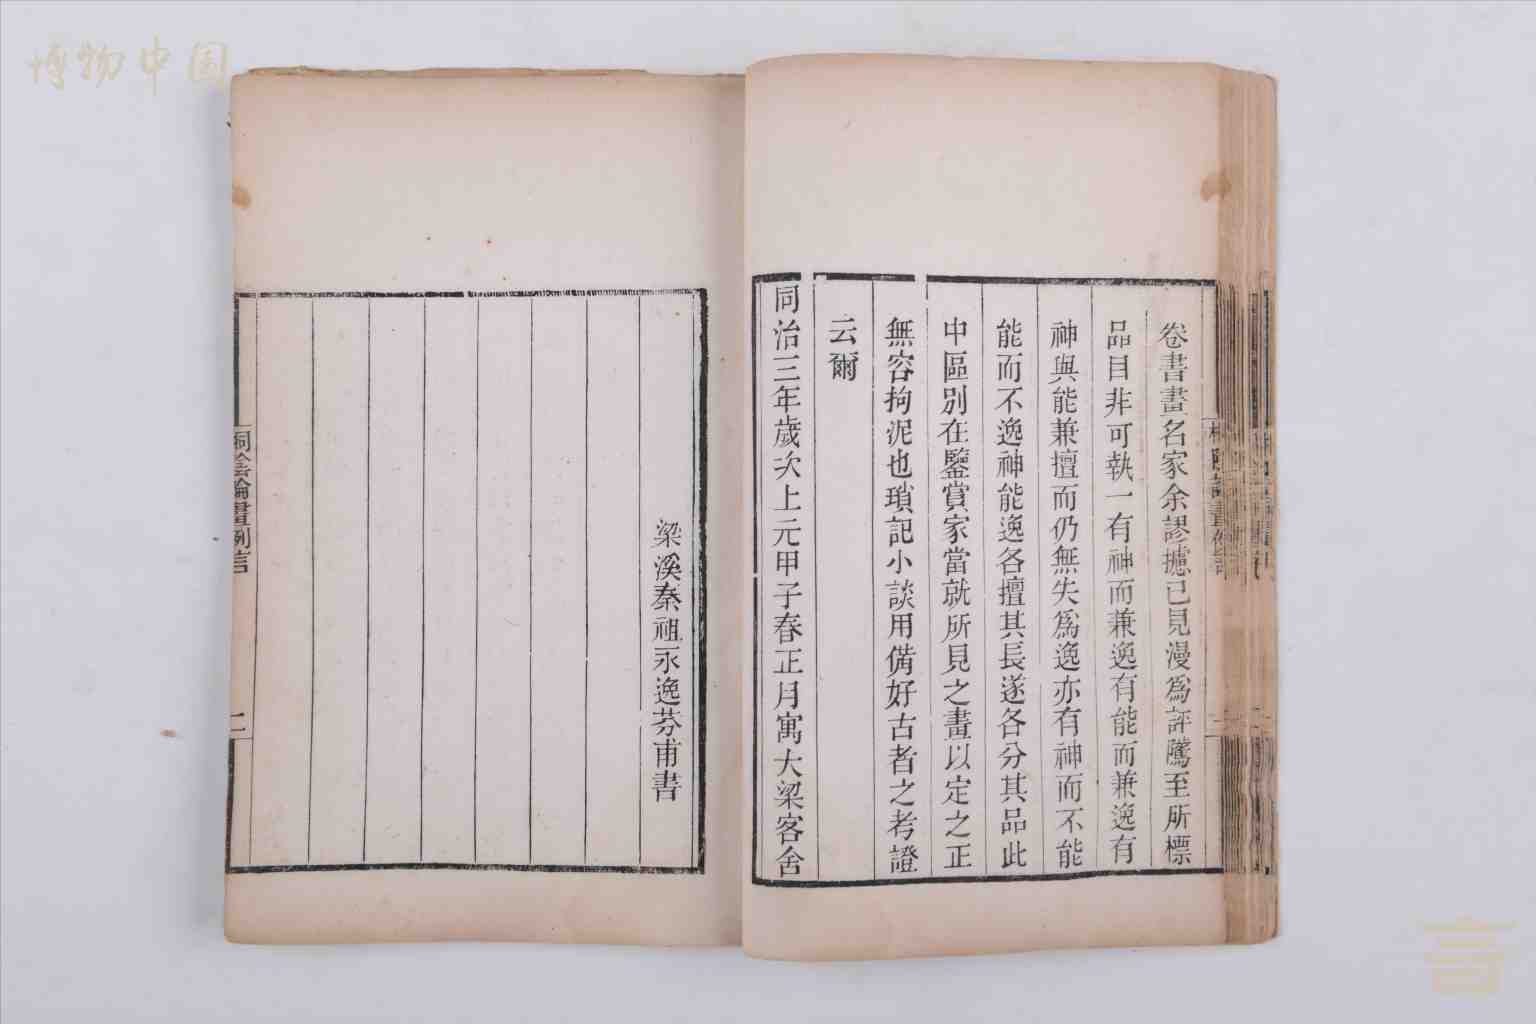 博物中国
卷書畫名家余謬攄已見漫爲評騭至所標
品目非可執一有神而兼逸有能而兼逸有
神與能兼擅而仍無失爲逸亦有神而不能
能而不逸神能逸各擅其長遂各分其品此
中區別在鑒賞家當就所見之畫以定之正
無容拘泥也瑣記小談用備好古者之考證
云爾
同治三年歲次上元甲子春正月寓大梁客舍
梁溪秦祖永逸芬甫書
桐陰論畫例言
二